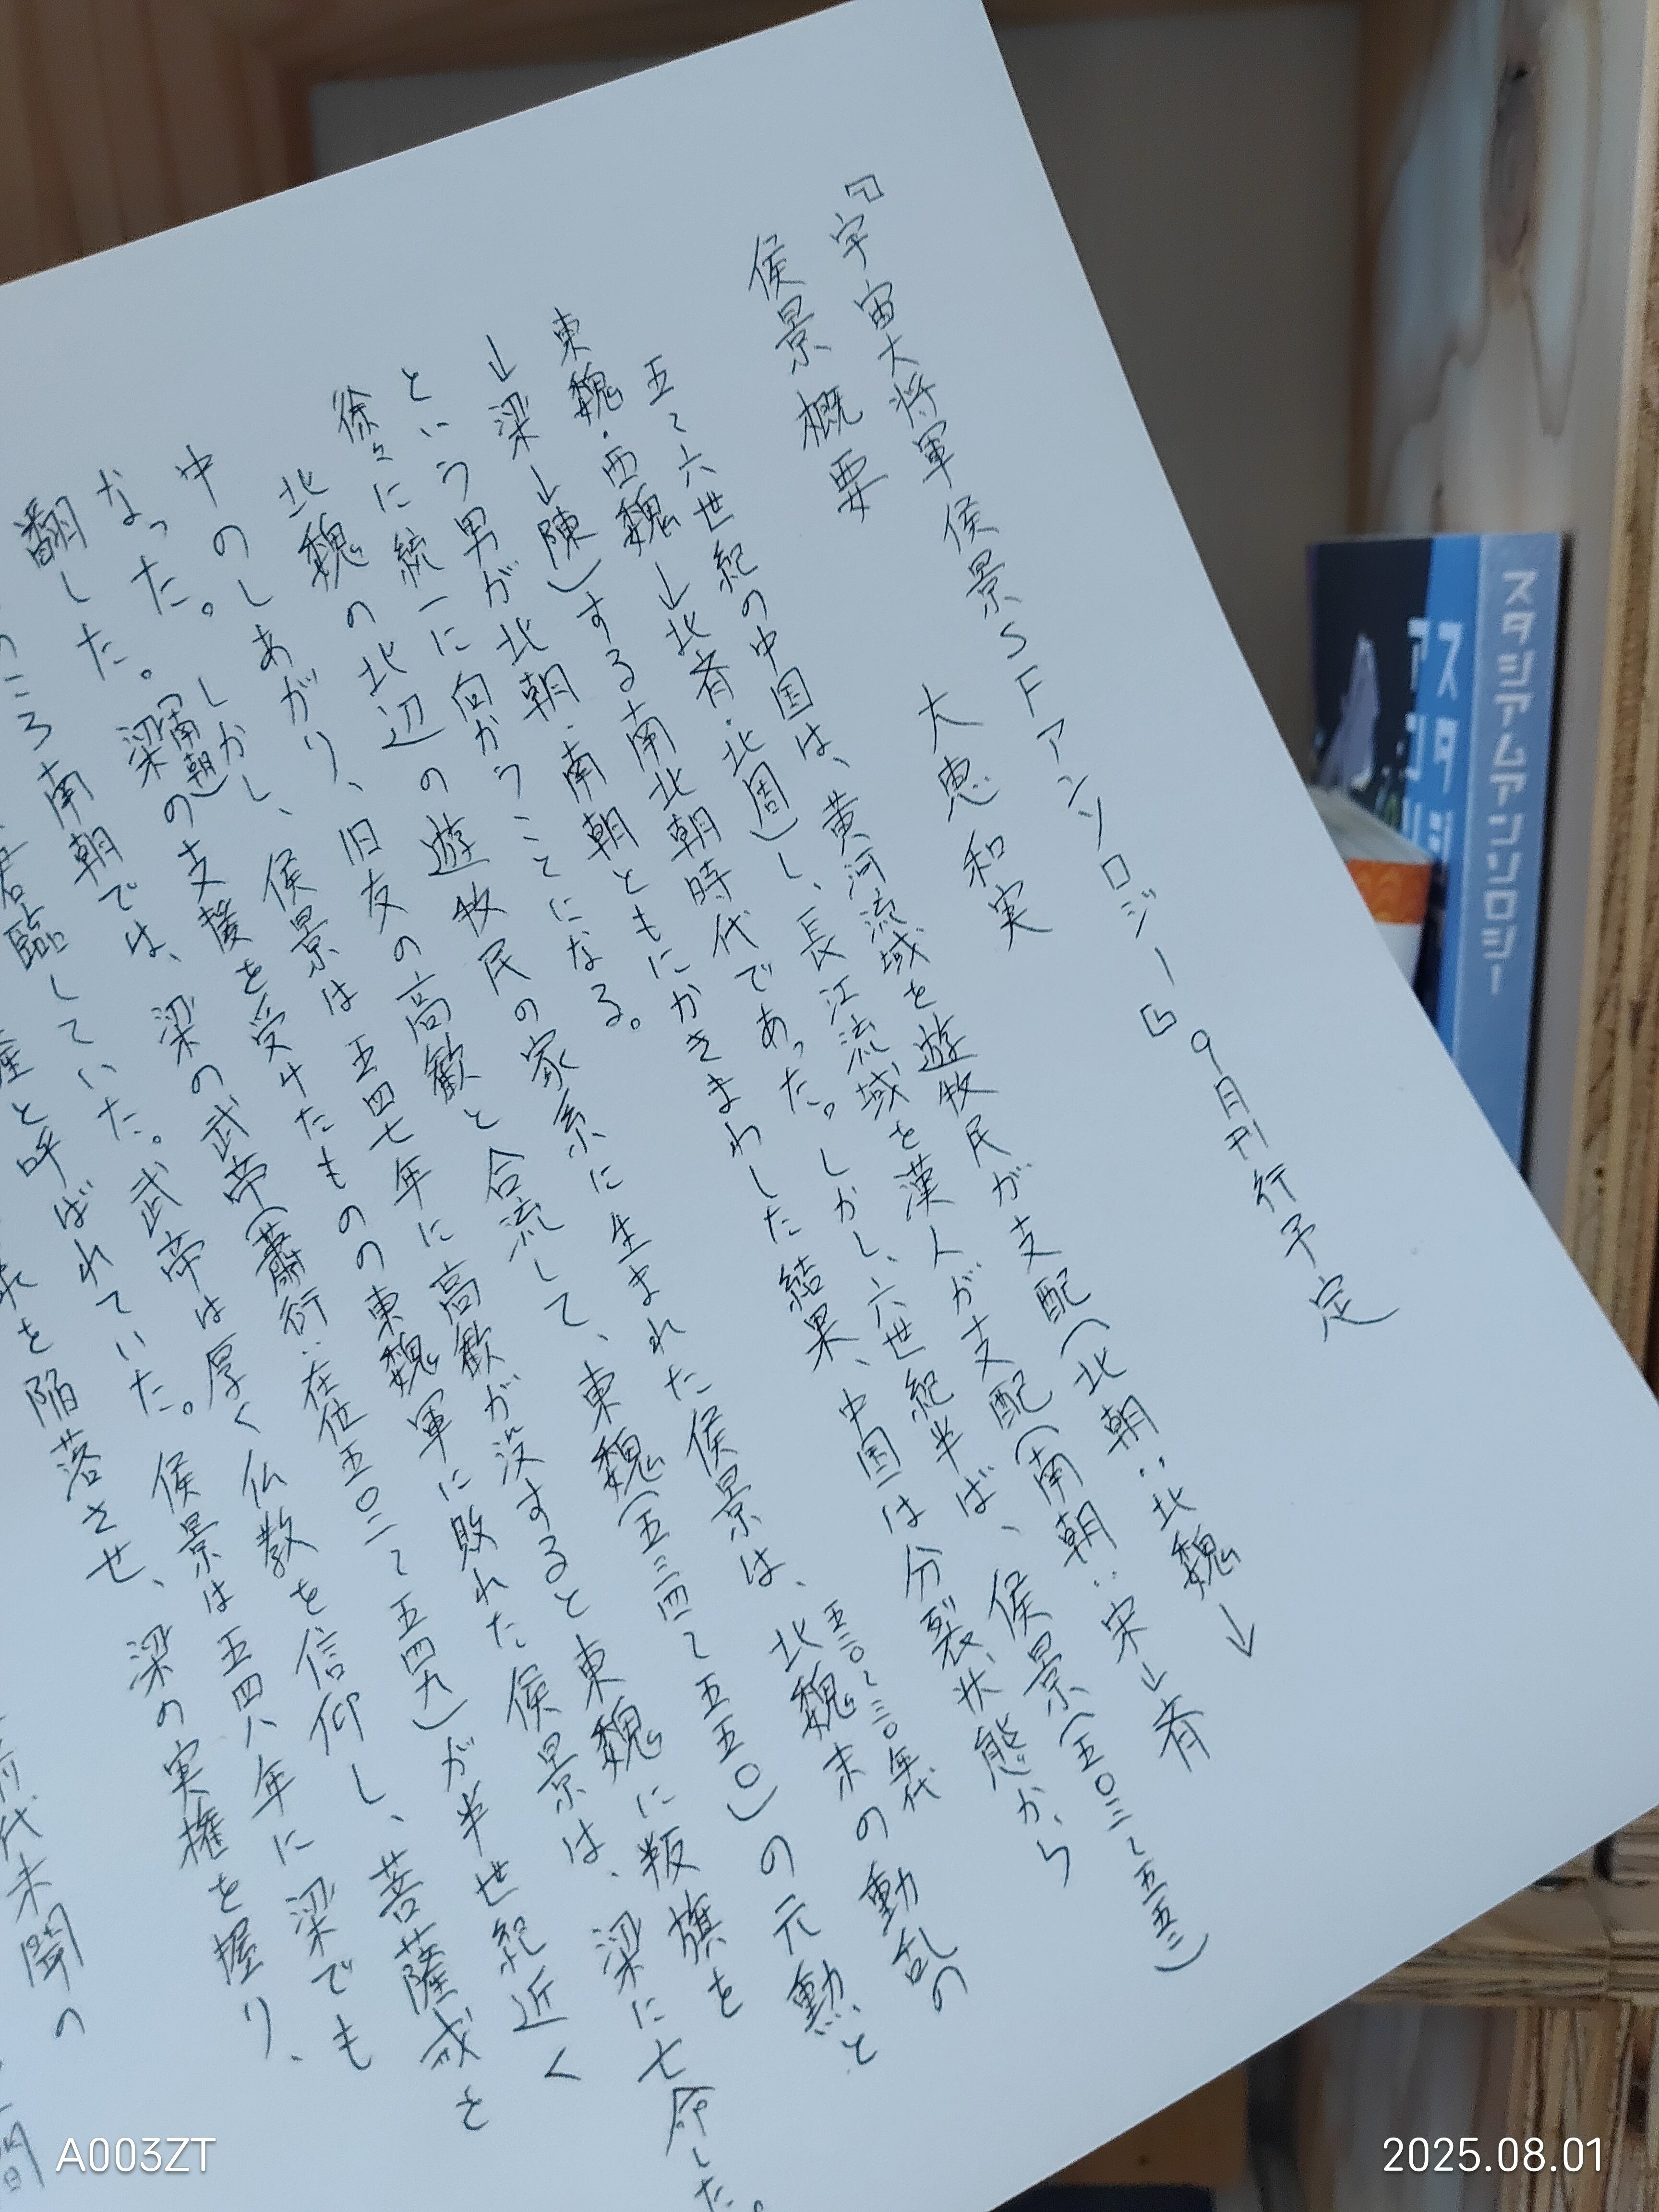 『宇宙大将軍侯景SFアンソロジー』9月刊行予定
侯景 概要 大恵和実
五～六世紀の中国は、黄河流域を遊牧民が支配（北朝：北魏→
東魏・西魏→北斉・北周）し、長江流域を漢人が支配（南朝：宋→斉
→梁→陳）する南北朝時代であった。しかし、六世紀半ば、侯景（五〇三～五五二）
という男が北朝・南朝ともにかきまわした結果、中国は分裂状態から
徐々に統一に向かうことになる。
五二〇～三〇年代
北魏の北辺の遊牧民の家系に生まれた侯景は、北魏末の動乱の
中のしあがり、旧友の高歓と合流して、東魏（五三四～五五〇）の元勲と
なった。しかし、侯景は五四七年に高歓が没すると東魏に叛旗を
（南朝）
翻した。梁の支援を受けたものの東魏軍に敗れた侯景は、梁に亡命した。
のころ南朝では、梁の武帝（蕭衍：在位五〇二～五四九）が半世紀近く
君臨していた。武帝は厚く仏教を信仰し、菩薩戒を
と呼ばれていた。侯景は五四八年に梁でも
を陥落させ、梁の実権を握り、
前代未聞の
スタジアムアンソロジー
A003ZT
2025.08.01